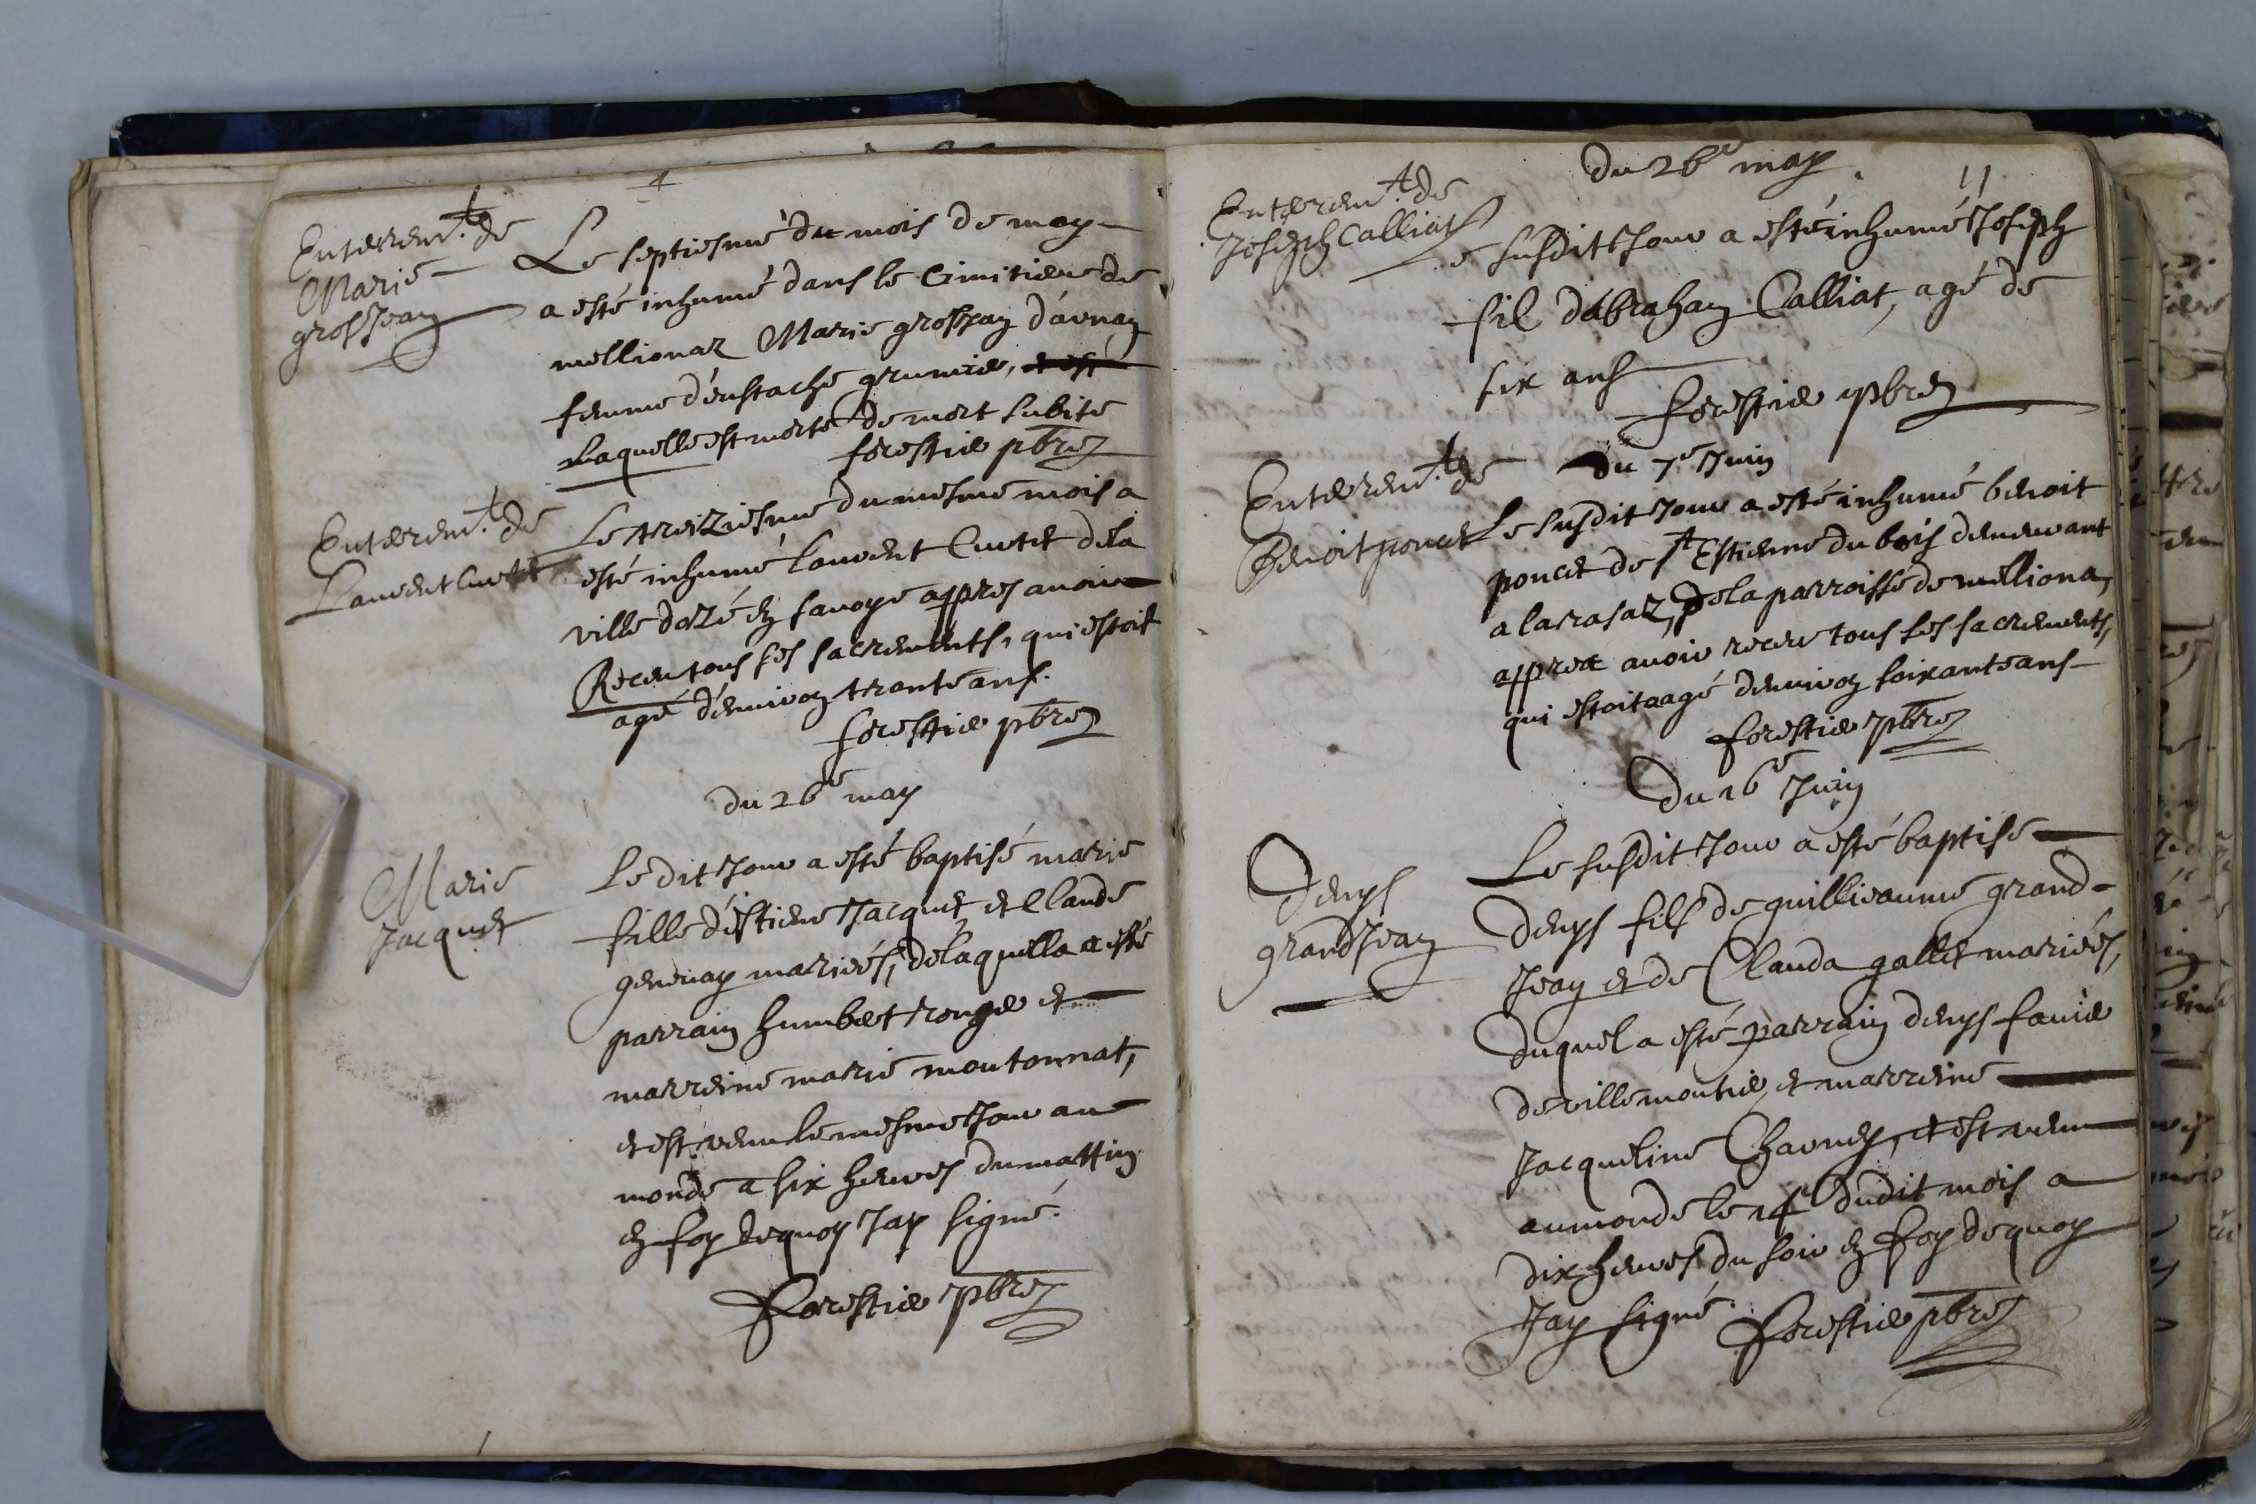 Enterem.t de
Marie
grosJean
Le septiesme du mois de may
a esté inhumé dans le Cimitiere de
mellionaz Marie grosjean d'avnay
femme d'eustache grumie,
Laquelle est morte de mort subite
forestie pbre
Enterem.t de
Laurent Cuvtet
Le treiziesme du mesme mois a
esté inhumé Laurent Cuvtet de la
ville en savoye appres avoir
Receu tous ses sacrements, qui estoit
agé d'enviro trante ans.
forestie pbre
du 26e may
Marie
Jacquet
Le dit Jour a esté baptisé marie
fille d'estiene Jacquet et Claude
mariés, de laquella a esté
parrain humbert rouge et
marreine marie moutonnat,
et est venu le mesme Jour au
monde a six heures du mattin
en foy dequoy Jay signé.
Forestie pbre
11
du 26e may
Enterem.t de
Joseph Calliat
Le susdit Jour a esté inhumé Joseph
fil d'abraham Calliat, agé de
six ans
forestie pbre
du 7e Juin
Enterem.t de
Benoit poncet
Le susdit Jour a esté inhumé benoit
poncet de st Estienne du bois demeurant
a larasaz, de la parroisse de melliona,
appres avoir receu tous ses sacrements,
qui estoit aagé denviron soixante ans
forestie pbre
Du 16e Juin
Denys
grandJean
Le susdit Jour a esté baptisé
denys fils de guillieaume grand-
Jean et de Clauda gallet mariés,
duquel a esté parrain denys favie
de villemoutie, et marreine
Jacqueline, et est venu
au monde le 14e dudit mois a
dix heures du soir en foy dequoy
Jay signé. forestie pbre